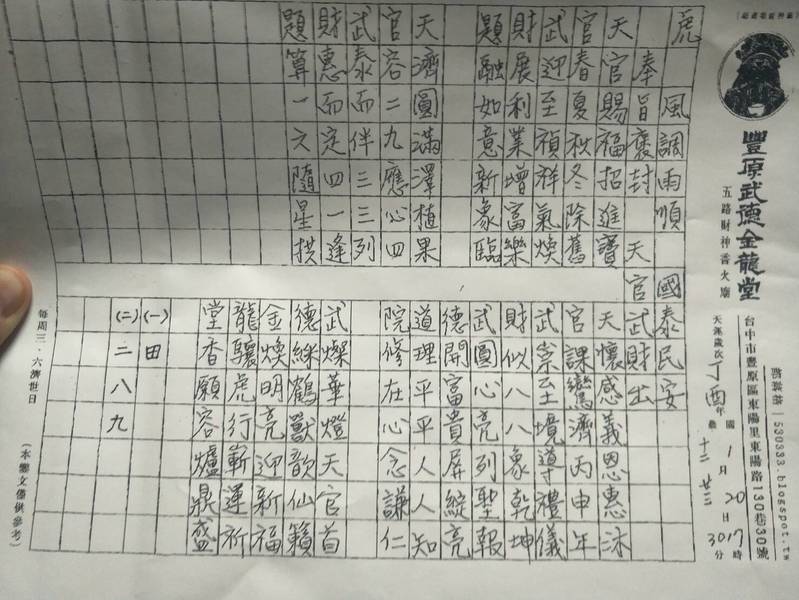 豐原武德金龍堂
五路財神香火廟
部落格 530333.blogspot.tw
台中市豐原區東陽里東陽路130巷30號
天運歲次丁酉年
農十二廿三
國1月20日17時30分
虎 風調雨順
國泰民安
奉旨褒封 天
官武財出
天官賜福招進寶
官春夏秋冬除舊
武迎至禎祥氣煥
財展利業增富樂
題融如意新象臨
天濟圓滿澤植果
官容二九應心四
武泰而伴三三列
財惠而定四一逢
題算一六隨星拱
天懷感義恩惠沐
官課鸞濟丙申年
武崇至境導禮儀
財似八八象乾坤
武圓心亮列聖報
德開富貴屏綻亮
道理平平人人知
院修在心念謙仁
武燦華燈天官首
德綵鶴獸歆仙籟
金煥明亮迎新福
龍驤虎行嶄運祈
堂香願容爐鼎盛
(一)田
(二)二八九
每周三、六濟世日
(本鸞文僅供參考)